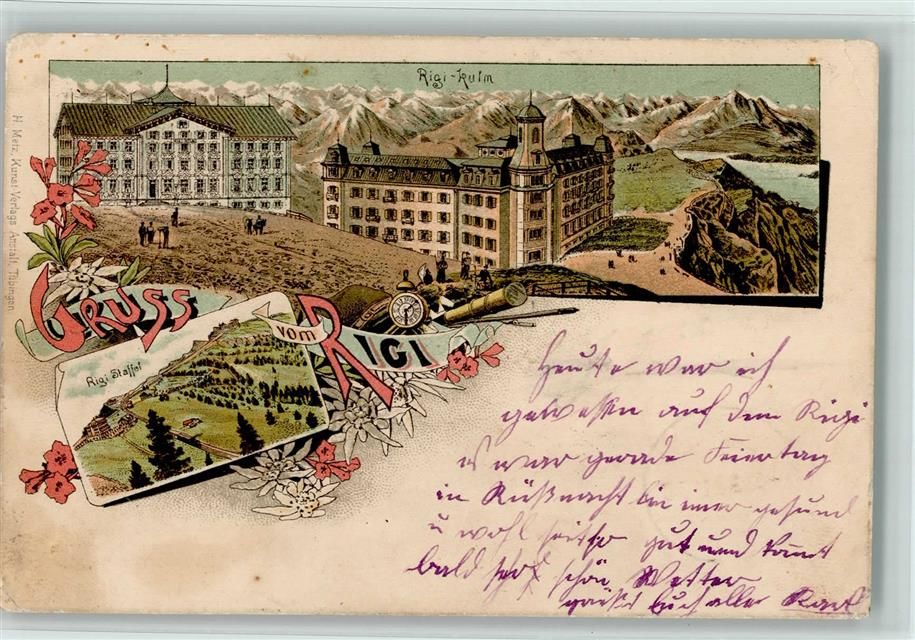 Rigi-Kulm
H. Metz, Kunst-Verlags Anstalt, Tübingen
GRUSS
VOM
RIGI
Rigi Staffel
Heute war ich
gewesen auf dem Rigi
es war gerade Feiertag
in Küßnacht bin imer gesund
u wohl gut und
bald schön Wetter
grüßt Euch alle Karl